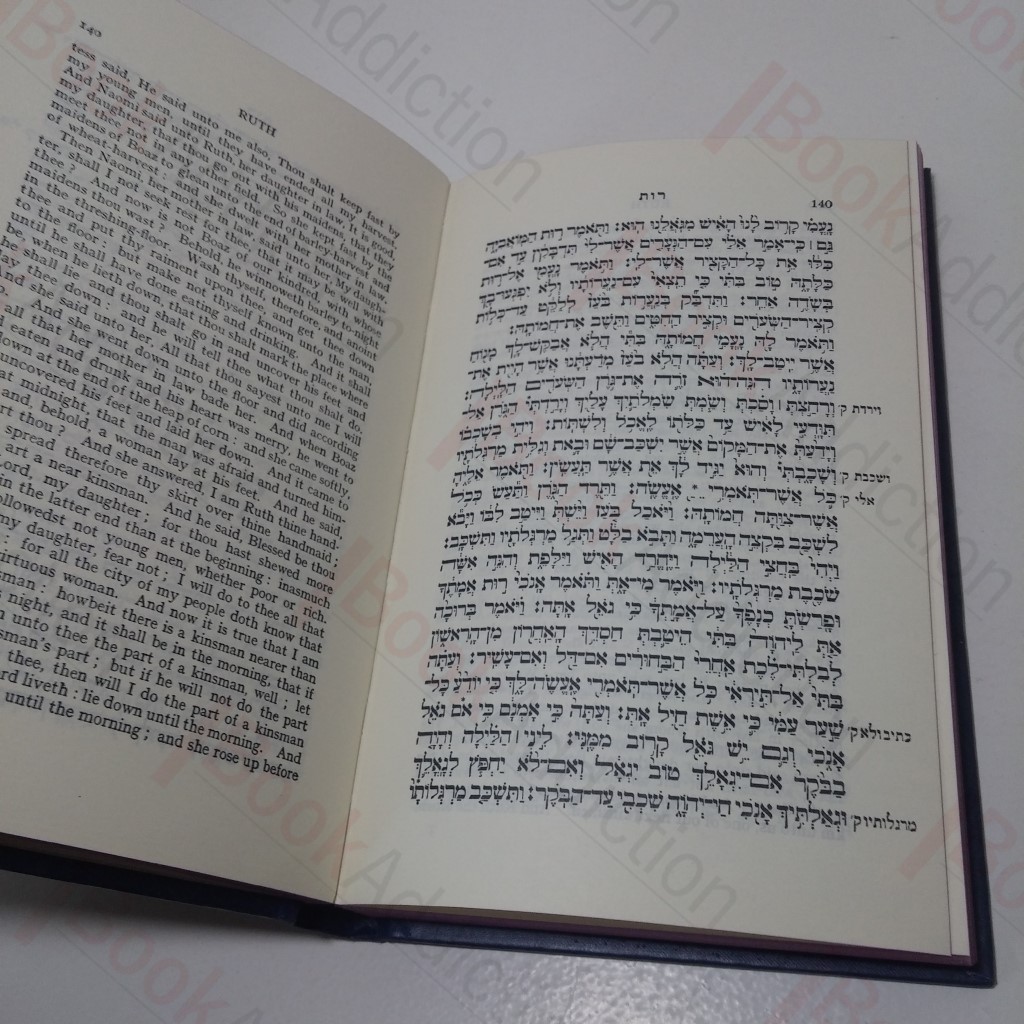 140
RUTH
tess said, He said unto me also, Thou shalt keep fast by
my young men, until they have ended all my harvest.
And Naomi said unto Ruth her daughter in law, It is good,
my daughter, that thou go out with his maidens, that they
meet thee not in any other field. So she kept fast by the
maidens of Boaz to glean unto the end of barley-harvest and
of wheat-harvest; and she dwelt with her mother in law.
Then Naomi, her mother in law, said unto her, My daugh-
ter, shall I not seek rest for thee, that it may be well with
thee? And now is not Boaz of our kindred, with whose
maidens thou wast? Behold, he winnoweth barley to-night
in the threshing-floor. Wash thyself, therefore, and anoint
thee and put thy raiment upon thee, and get thee down
to the floor: but make not thyself known unto the man,
he shall have done eating and drinking. And it shall
be, when he lieth down, that thou shalt mark the place where
he shall lie, and thou shalt go in and uncover his feet and
lay thee down: and he will tell thee what thou shalt do.
And she said unto her, All that thou sayest unto me I will
And she went down unto the floor and did according
all that her mother in law bade her. And when Boaz
eaten and drunk and his heart was merry, he went to
down at the end of the heap of corn: and she came softly,
uncovered his feet and laid her down. And it came to
at midnight, that the man was afraid and turned him-
and, behold, a woman lay at his feet. And he said,
art thou? And she answered, I am Ruth thine hand.
spread therefore thy skirt over thine handmaid;
art a near kinsman. And he said, Blessed be thou
Lord, my daughter; for thou hast shewed more
in the latter end than at the beginning: inasmuch
followedst not young men, whether poor or rich.
my daughter, fear not; I will do to thee all that
: for all the city of my people doth know that
virtuous woman. And now it is true that I am
kinsman: howbeit there is a kinsman nearer than
this night, and it shall be in the morning, that if
unto thee the part of a kinsman, well; let
kinsman's part; but if he will not do the part
thee, then will I do the part of a kinsman
Lord liveth: lie down until the morning. And
until the morning; and she rose up before
רות
140
נָעֳמִי קָרוֹב לָנוּ הָאִישׁ מִגֹּאֲלֵנוּ הוּא׃ וַתֹּאמֶר רוּת הַמּוֹאֲבִיָּה
גַּם ׀ כִּי־אָמַר אֵלַי עִם־הַנְּעָרִים אֲשֶׁר־לִי תִּדְבָּקִין עַד אִם־
כִּלּוּ אֵת כָּל־הַקָּצִיר אֲשֶׁר־לִי׃ וַתֹּאמֶר נָעֳמִי אֶל־רוּת
כַּלָּתָהּ טוֹב בִּתִּי כִּי תֵצְאִי עִם־נַעֲרוֹתָיו וְלֹא יִפְגְּעוּ־בָךְ
בְּשָׂדֶה אַחֵר׃ וַתִּדְבַּק בְּנַעֲרוֹת בֹּעַז לְלַקֵּט עַד־כְּלוֹת
קְצִיר־הַשְּׂעֹרִים וּקְצִיר הַחִטִּים וַתֵּשֶׁב אֶת־חֲמוֹתָהּ׃
וַתֹּאמֶר לָהּ נָעֳמִי חֲמוֹתָהּ בִּתִּי הֲלֹא אֲבַקֶּשׁ־לָךְ מָנוֹחַ
אֲשֶׁר יִיטַב־לָךְ׃ וְעַתָּה הֲלֹא בֹעַז מֹדַעְתָּנוּ אֲשֶׁר הָיִית אֶת־
נַעֲרוֹתָיו הִנֵּה־הוּא זֹרֶה אֶת־גֹּרֶן הַשְּׂעֹרִים הַלָּיְלָה׃
וְרָחַצְתְּ ׀ וָסַכְתְּ וְשַׂמְתְּ שִׂמְלֹתַיִךְ עָלַיִךְ וְיָרַדְתִּי הַגֹּרֶן אַל־ וירדת ק׳
תִּוָּדְעִי לָאִישׁ עַד כַּלֹּתוֹ לֶאֱכֹל וְלִשְׁתּוֹת׃ וִיהִי בְשָׁכְבוֹ
וְיָדַעַתְּ אֶת־הַמָּקוֹם אֲשֶׁר יִשְׁכַּב־שָׁם וּבָאת וְגִלִּית מַרְגְּלֹתָיו
וְשָׁכָבְתִּי וְהוּא יַגִּיד לָךְ אֵת אֲשֶׁר תַּעֲשִׂין׃ וַתֹּאמֶר אֵלֶיהָ ושכבת ק׳
כֹּל אֲשֶׁר־תֹּאמְרִי אֶעֱשֶׂה׃ וַתֵּרֶד הַגֹּרֶן וַתַּעַשׂ כְּכֹל אלי ק׳
אֲשֶׁר־צִוַּתָּה חֲמוֹתָהּ׃ וַיֹּאכַל בֹּעַז וַיֵּשְׁתְּ וַיִּיטַב לִבּוֹ וַיָּבֹא
לִשְׁכַּב בִּקְצֵה הָעֲרֵמָה וַתָּבֹא בַלָּט וַתְּגַל מַרְגְּלֹתָיו וַתִּשְׁכָּב׃
וַיְהִי בַּחֲצִי הַלַּיְלָה וַיֶּחֱרַד הָאִישׁ וַיִּלָּפֵת וְהִנֵּה אִשָּׁה
שֹׁכֶבֶת מַרְגְּלֹתָיו׃ וַיֹּאמֶר מִי־אָתְּ וַתֹּאמֶר אָנֹכִי רוּת אֲמָתֶךָ
וּפָרַשְׂתָּ כְנָפֶךָ עַל־אֲמָתְךָ כִּי גֹאֵל אָתָּה׃ וַיֹּאמֶר בְּרוּכָה
אַתְּ לַיהוָה בִּתִּי הֵיטַבְתְּ חַסְדֵּךְ הָאַחֲרוֹן מִן־הָרִאשׁוֹן
לְבִלְתִּי־לֶכֶת אַחֲרֵי הַבַּחוּרִים אִם־דַּל וְאִם־עָשִׁיר׃ וְעַתָּה
בִּתִּי אַל־תִּירְאִי כֹּל אֲשֶׁר־תֹּאמְרִי אֶעֱשֶׂה־לָּךְ כִּי יוֹדֵעַ כָּל־
שַׁעַר עַמִּי כִּי אֵשֶׁת חַיִל אָתְּ׃ וְעַתָּה כִּי אָמְנָם כִּי אם גֹאֵל כתיב ולא ק׳
אָנֹכִי וְגַם יֵשׁ גֹּאֵל קָרוֹב מִמֶּנִּי׃ לִינִי ׀ הַלַּיְלָה וְהָיָה
בַבֹּקֶר אִם־יִגְאָלֵךְ טוֹב יִגְאָל וְאִם־לֹא יַחְפֹּץ לְגָאֳלֵךְ
וּגְאַלְתִּיךְ אָנֹכִי חַי־יְהוָה שִׁכְבִי עַד־הַבֹּקֶר׃ וַתִּשְׁכַּב מַרְגְּלוֹתָו מרגלותיו ק׳